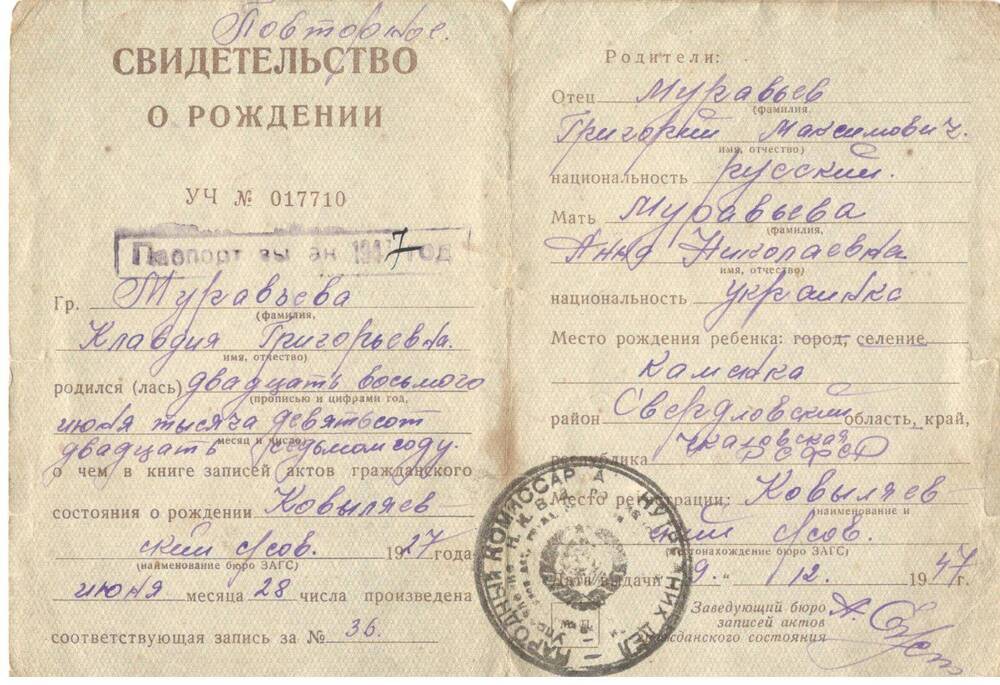 Повторное.
СВИДЕТЕЛЬСТВО
О РОЖДЕНИИ
УЧ № 017710
Паспорт вы ан 1947 год
Гр. Муравьева
(фамилия,
Клавдия Григорьевна.
имя, отчество)
родился (лась) двадцать восьмого
(прописью и цифрами год,
июня тысяча девятьсот
месяц и число)
двадцать седьмом году.
о чем в книге записей актов гражданского
состояния о рождении Ковыляев
ский с/сов. 1927 года
(наименование бюро ЗАГС)
июня месяца 28 числа произведена
соответствующая запись за № 36.
Родители:
Отец Муравьев
(фамилия,
Григорий Максимович.
имя, отчество)
национальность русский.
Мать Муравьева
(фамилия,
Анна Николаевна
имя, отчество)
национальность украинка
Место рождения ребенка: город, селение
Каменка
район Свердловский область, край,
Чкаловская
республика РСФСР
Место регистрации: Ковыляев
наименование и
ский с/сов.
местонахождение бюро ЗАГС)
Дата выдачи 9." 12. 1947 г.
Заведующий бюро
записей актов
гражданского состояния
НАРОДНЫЙ КОМИССАР А ВНУТ НИХ ДЕЛ